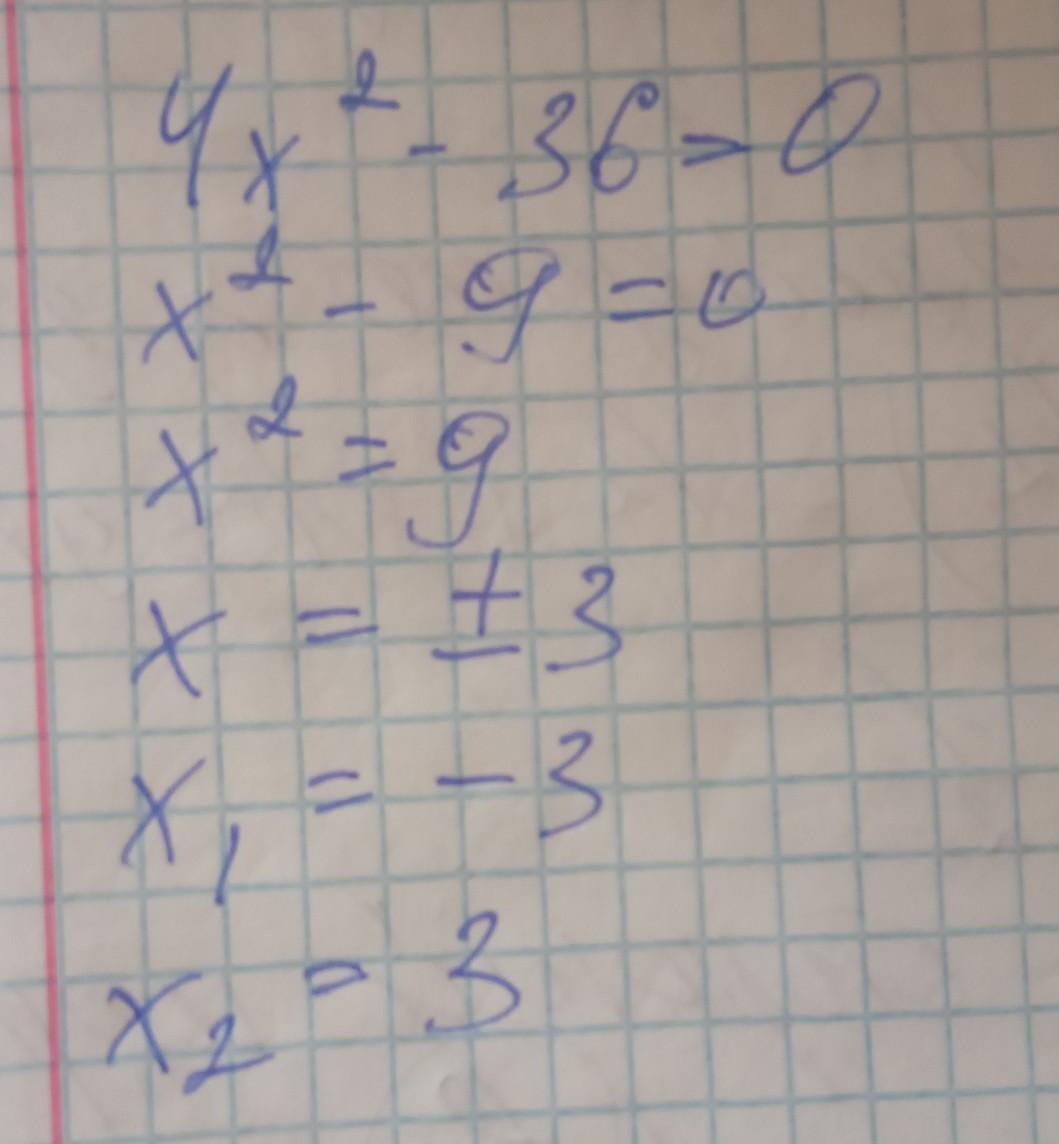 4x² - 36 = 0
x² - 9 = 0
x² = 9
x = ± 3
x₁ = - 3
x₂ = 3